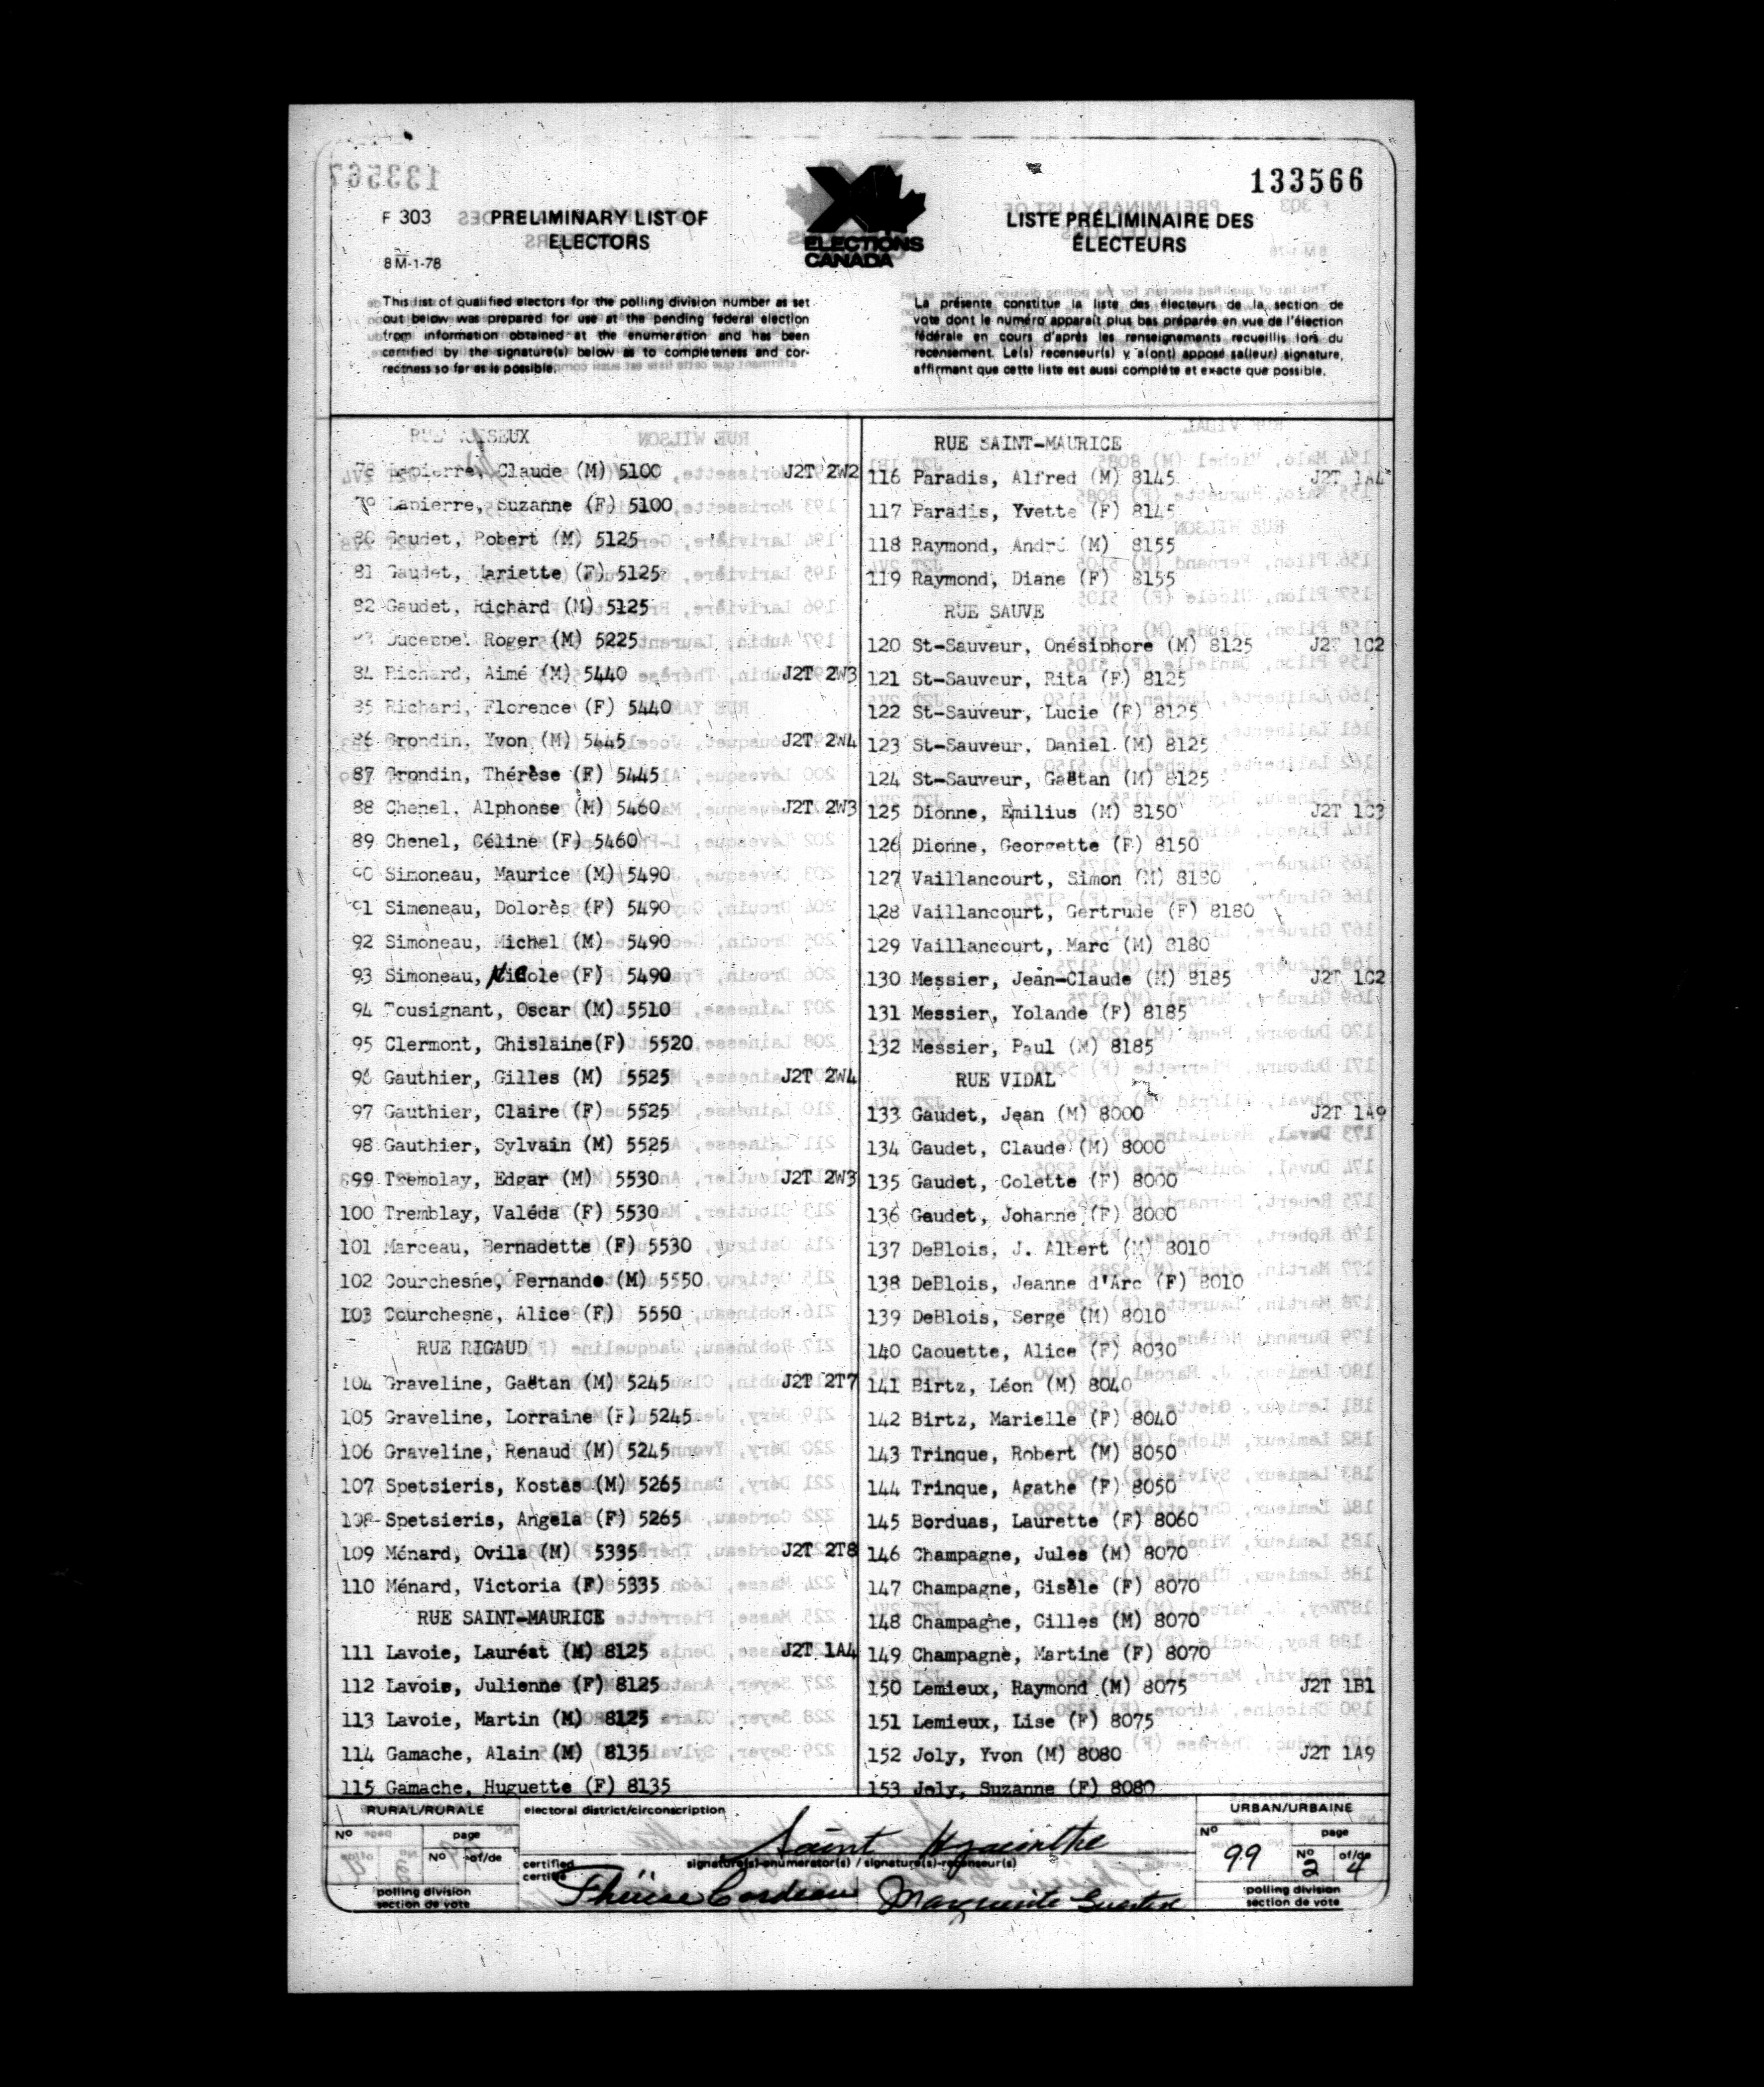 133566
F 303
PRELIMINARY LIST OF
ELECTORS
8 M-1-78
ELECTIONS
CANADA
LISTE PRÉLIMINAIRE DES
ÉLECTEURS
This list of qualified electors for the polling division number as set
out below was prepared for use at the pending federal election
from information obtained at the enumeration and has been
certified by the signature(s) below as to completeness and cor-
rectness so far as is possible.
La présente constitue la liste des électeurs de la section de
vote dont le numéro apparaît plus bas préparée en vue de l'élection
fédérale en cours d'après les renseignements recueillis lors du
recensement. Le(s) recenseur(s) y a(ont) apposé sa(leur) signature,
affirmant que cette liste est aussi complète et exacte que possible.
RUE
78 Lapierre, Claude (M) 5100 J2T 2W2
79 Lapierre, Suzanne (F) 5100
80 Gaudet, Robert (M) 5125
81 Gaudet, Mariette (F) 5125
82 Gaudet, Richard (M) 5125
83 Duceppe, Roger (M) 5225
84 Richard, Aimé (M) 5440 J2T 2W3
85 Richard, Florence (F) 5440
86 Grondin, Yvon (M) 5445 J2T 2W4
87 Grondin, Thérèse (F) 5445
88 Chenel, Alphonse (M) 5460 J2T 2W3
89 Chenel, Céline (F) 5460
90 Simoneau, Maurice (M) 5490
91 Simoneau, Dolorès (F) 5490
92 Simoneau, Michel (M) 5490
93 Simoneau, Nicole (F) 5490
94 Tousignant, Oscar (M) 5510
95 Clermont, Ghislaine(F) 5520
96 Gauthier, Gilles (M) 5525 J2T 2W4
97 Gauthier, Claire (F) 5525
98 Gauthier, Sylvain (M) 5525
99 Tremblay, Edgar (M) 5530 J2T 2W3
100 Tremblay, Valéda (F) 5530
101 Marceau, Bernadette (F) 5530
102 Courchesne, Fernando (M) 5550
103 Courchesne, Alice (F) 5550
RUE RIGAUD
104 Graveline, Gaëtan (M) 5245 J2T 2T7
105 Graveline, Lorraine (F) 5245
106 Graveline, Renaud (M) 5245
107 Spetsieris, Kostas (M) 5265
108 Spetsieris, Angela (F) 5265
109 Ménard, Ovila (M) 5335 J2T 2T8
110 Ménard, Victoria (F) 5335
RUE SAINT-MAURICE
111 Lavoie, Lauréat (M) 8125 J2T 1A4
112 Lavoie, Julienne (F) 8125
113 Lavoie, Martin (M) 8125
114 Gamache, Alain (M) 8135
115 Gamache, Huguette (F) 8135
RUE SAINT-MAURICE
116 Paradis, Alfred (M) 8145 J2T 1A4
117 Paradis, Yvette (F) 8145
118 Raymond, André (M) 8155
119 Raymond, Diane (F) 8155
RUE SAUVE
120 St-Sauveur, Onésiphore (M) 8125 J2T 1C2
121 St-Sauveur, Rita (F) 8125
122 St-Sauveur, Lucie (F) 8125
123 St-Sauveur, Daniel (M) 8125
124 St-Sauveur, Gaëtan (M) 8125
125 Dionne, Emilius (M) 8150 J2T 1C3
126 Dionne, Georgette (F) 8150
127 Vaillancourt, Simon (M) 8180
128 Vaillancourt, Gertrude (F) 8180
129 Vaillancourt, Marc (M) 8180
130 Messier, Jean-Claude (M) 8185 J2T 1C2
131 Messier, Yolande (F) 8185
132 Messier, Paul (M) 8185
RUE VIDAL
133 Gaudet, Jean (M) 8000 J2T 1A9
134 Gaudet, Claude (M) 8000
135 Gaudet, Colette (F) 8000
136 Gaudet, Johanne (F) 8000
137 DeBlois, J. Albert (M) 8010
138 DeBlois, Jeanne d'Arc (F) 8010
139 DeBlois, Serge (M) 8010
140 Caouette, Alice (F) 8030
141 Birtz, Léon (M) 8040
142 Birtz, Marielle (F) 8040
143 Trinque, Robert (M) 8050
144 Trinque, Agathe (F) 8050
145 Borduas, Laurette (F) 8060
146 Champagne, Jules (M) 8070
147 Champagne, Gisèle (F) 8070
148 Champagne, Gilles (M) 8070
149 Champagne, Martine (F) 8070
150 Lemieux, Raymond (M) 8075 J2T 1B1
151 Lemieux, Lise (F) 8075
152 Joly, Yvon (M) 8080 J2T 1A9
153 Joly, Suzanne (F) 8080
RURAL/RURALE
No
page
No of/de
polling division
section de vote
electoral district/circonscription
Saint Hyacinthe
certified
certifié
signature(s)-enumerator(s) / signature(s)-recenseur(s)
Thérèse Cordeau Marguerite
URBAN/URBAINE
No
page
99
No of/de
2 4
polling division
section de vote